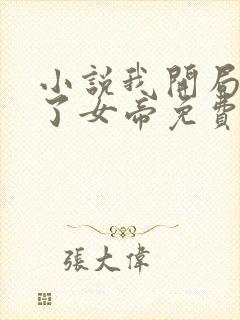 小説我開局
了女帝免費
張大偉